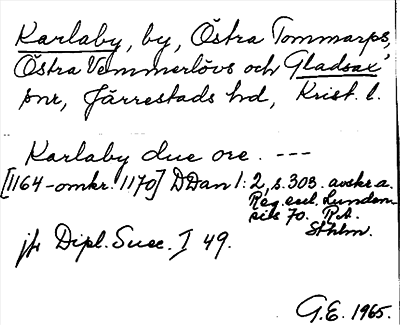 Karlaby, by, Östra Tommarps,
Östra Vemmerlövs och Gladsax'
snr, Järrestads hd, Krist. l.
Karlaby due ore. ---
[1164-omkr. 1170] DDan 1:2, s. 303. avskr. a.
Reg. eccl. Lunden-
sis 70. RA.
Sthlm.
jfr Dipl. Suec. I 49.
G.E. 1965.